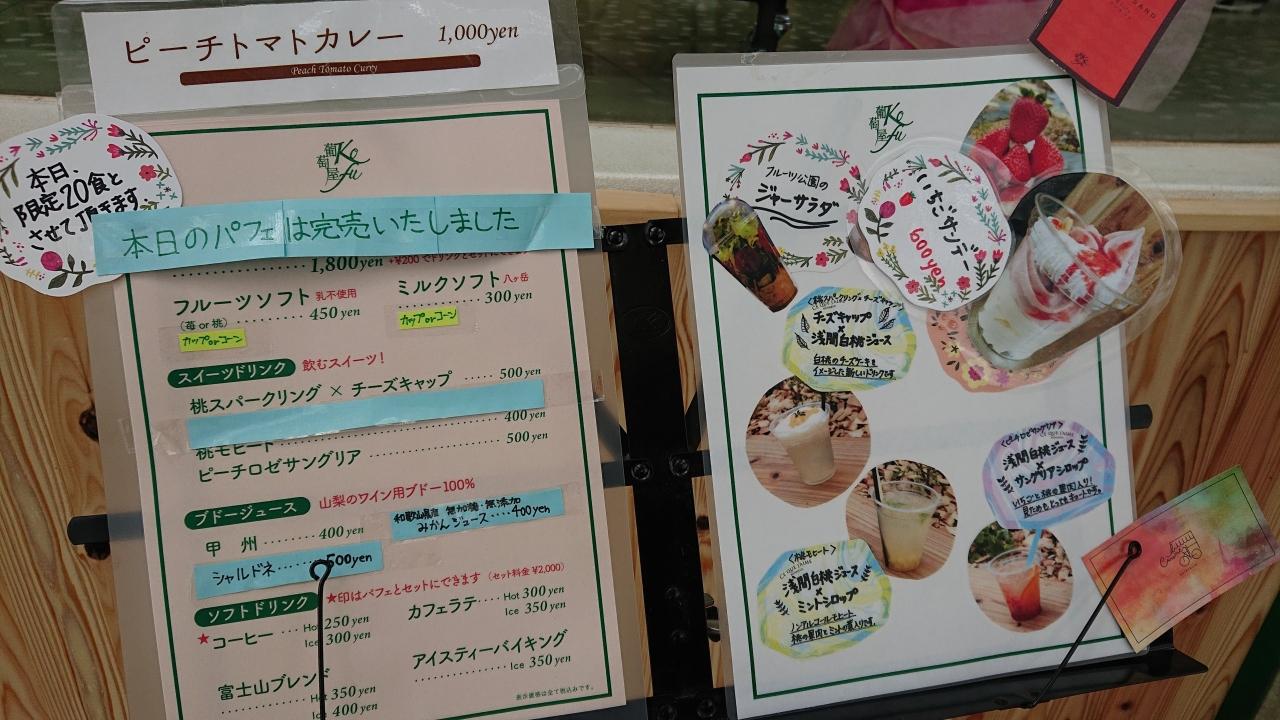 ピーチトマトカレー 1,000yen
Peach Tomato Curry
本日、
限定20食と
させて頂きます
葡萄屋 Kefu
本日のパフェは完売いたしました
1,800yen +¥200でドリンクとセットに
フルーツソフト 乳不使用
(苺 or 桃) 450 yen
カップorコーン
ミルクソフト 八ヶ岳
300 yen
カップorコーン
スイーツドリンク 飲むスイーツ!
桃スパークリング × チーズキャップ 500 yen
桃モヒート 400 yen
ピーチロゼサングリア 500 yen
ブドージュース 山梨のワイン用ブドー100%
甲 州 400 yen
和歌山県産 無加糖・無添加
みかんジュース・・・・400yen
シャルドネ・・・・・500yen
ソフトドリンク ★印はパフェとセットにできます (セット料金 ¥2,000)
★コーヒー Hot 250 yen
Ice 300 yen
カフェラテ Hot 300 yen
Ice 350 yen
富士山ブレンド
Hot 350 yen
Ice 400 yen
アイスティーバイキング
Ice 350 yen
表示価格は全て税込みです。
葡萄屋 Kefu
フルーツ公園の
ジャーサラダ
いちごサンデー
600yen
<桃スパークリング×チーズキャップ>
チーズキャップ
×
浅間白桃ジュース
白桃のチーズケーキを
イメージした新しいドリンクです
<ピーチロゼサングリア>
浅間白桃ジュース
×
サングリアシロップ
いちごと桃の果肉入り!
見ためもとってもキュートな
<桃モヒート>
浅間白桃ジュース
×
ミントシロップ
ノンアルコールモヒート
桃の果肉とミントの葉入りです。